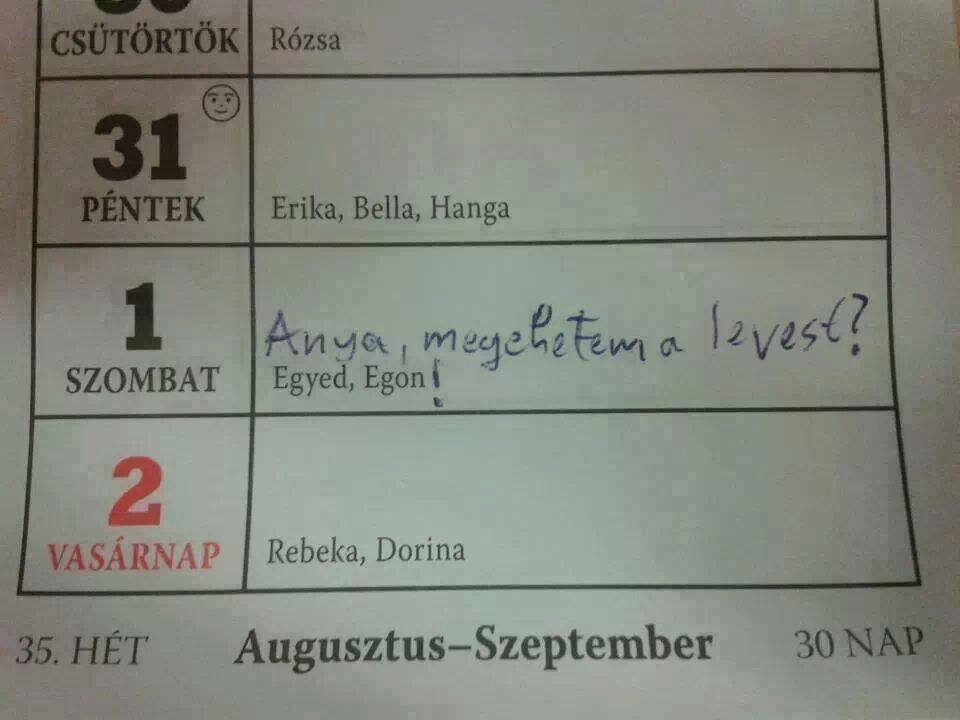 CSÜTÖRTÖK Rózsa
31
PÉNTEK Erika, Bella, Hanga
1 Anya, megehetem a levest?
SZOMBAT Egyed, Egon!
2
VASÁRNAP Rebeka, Dorina
35. HÉT Augusztus–Szeptember 30 NAP